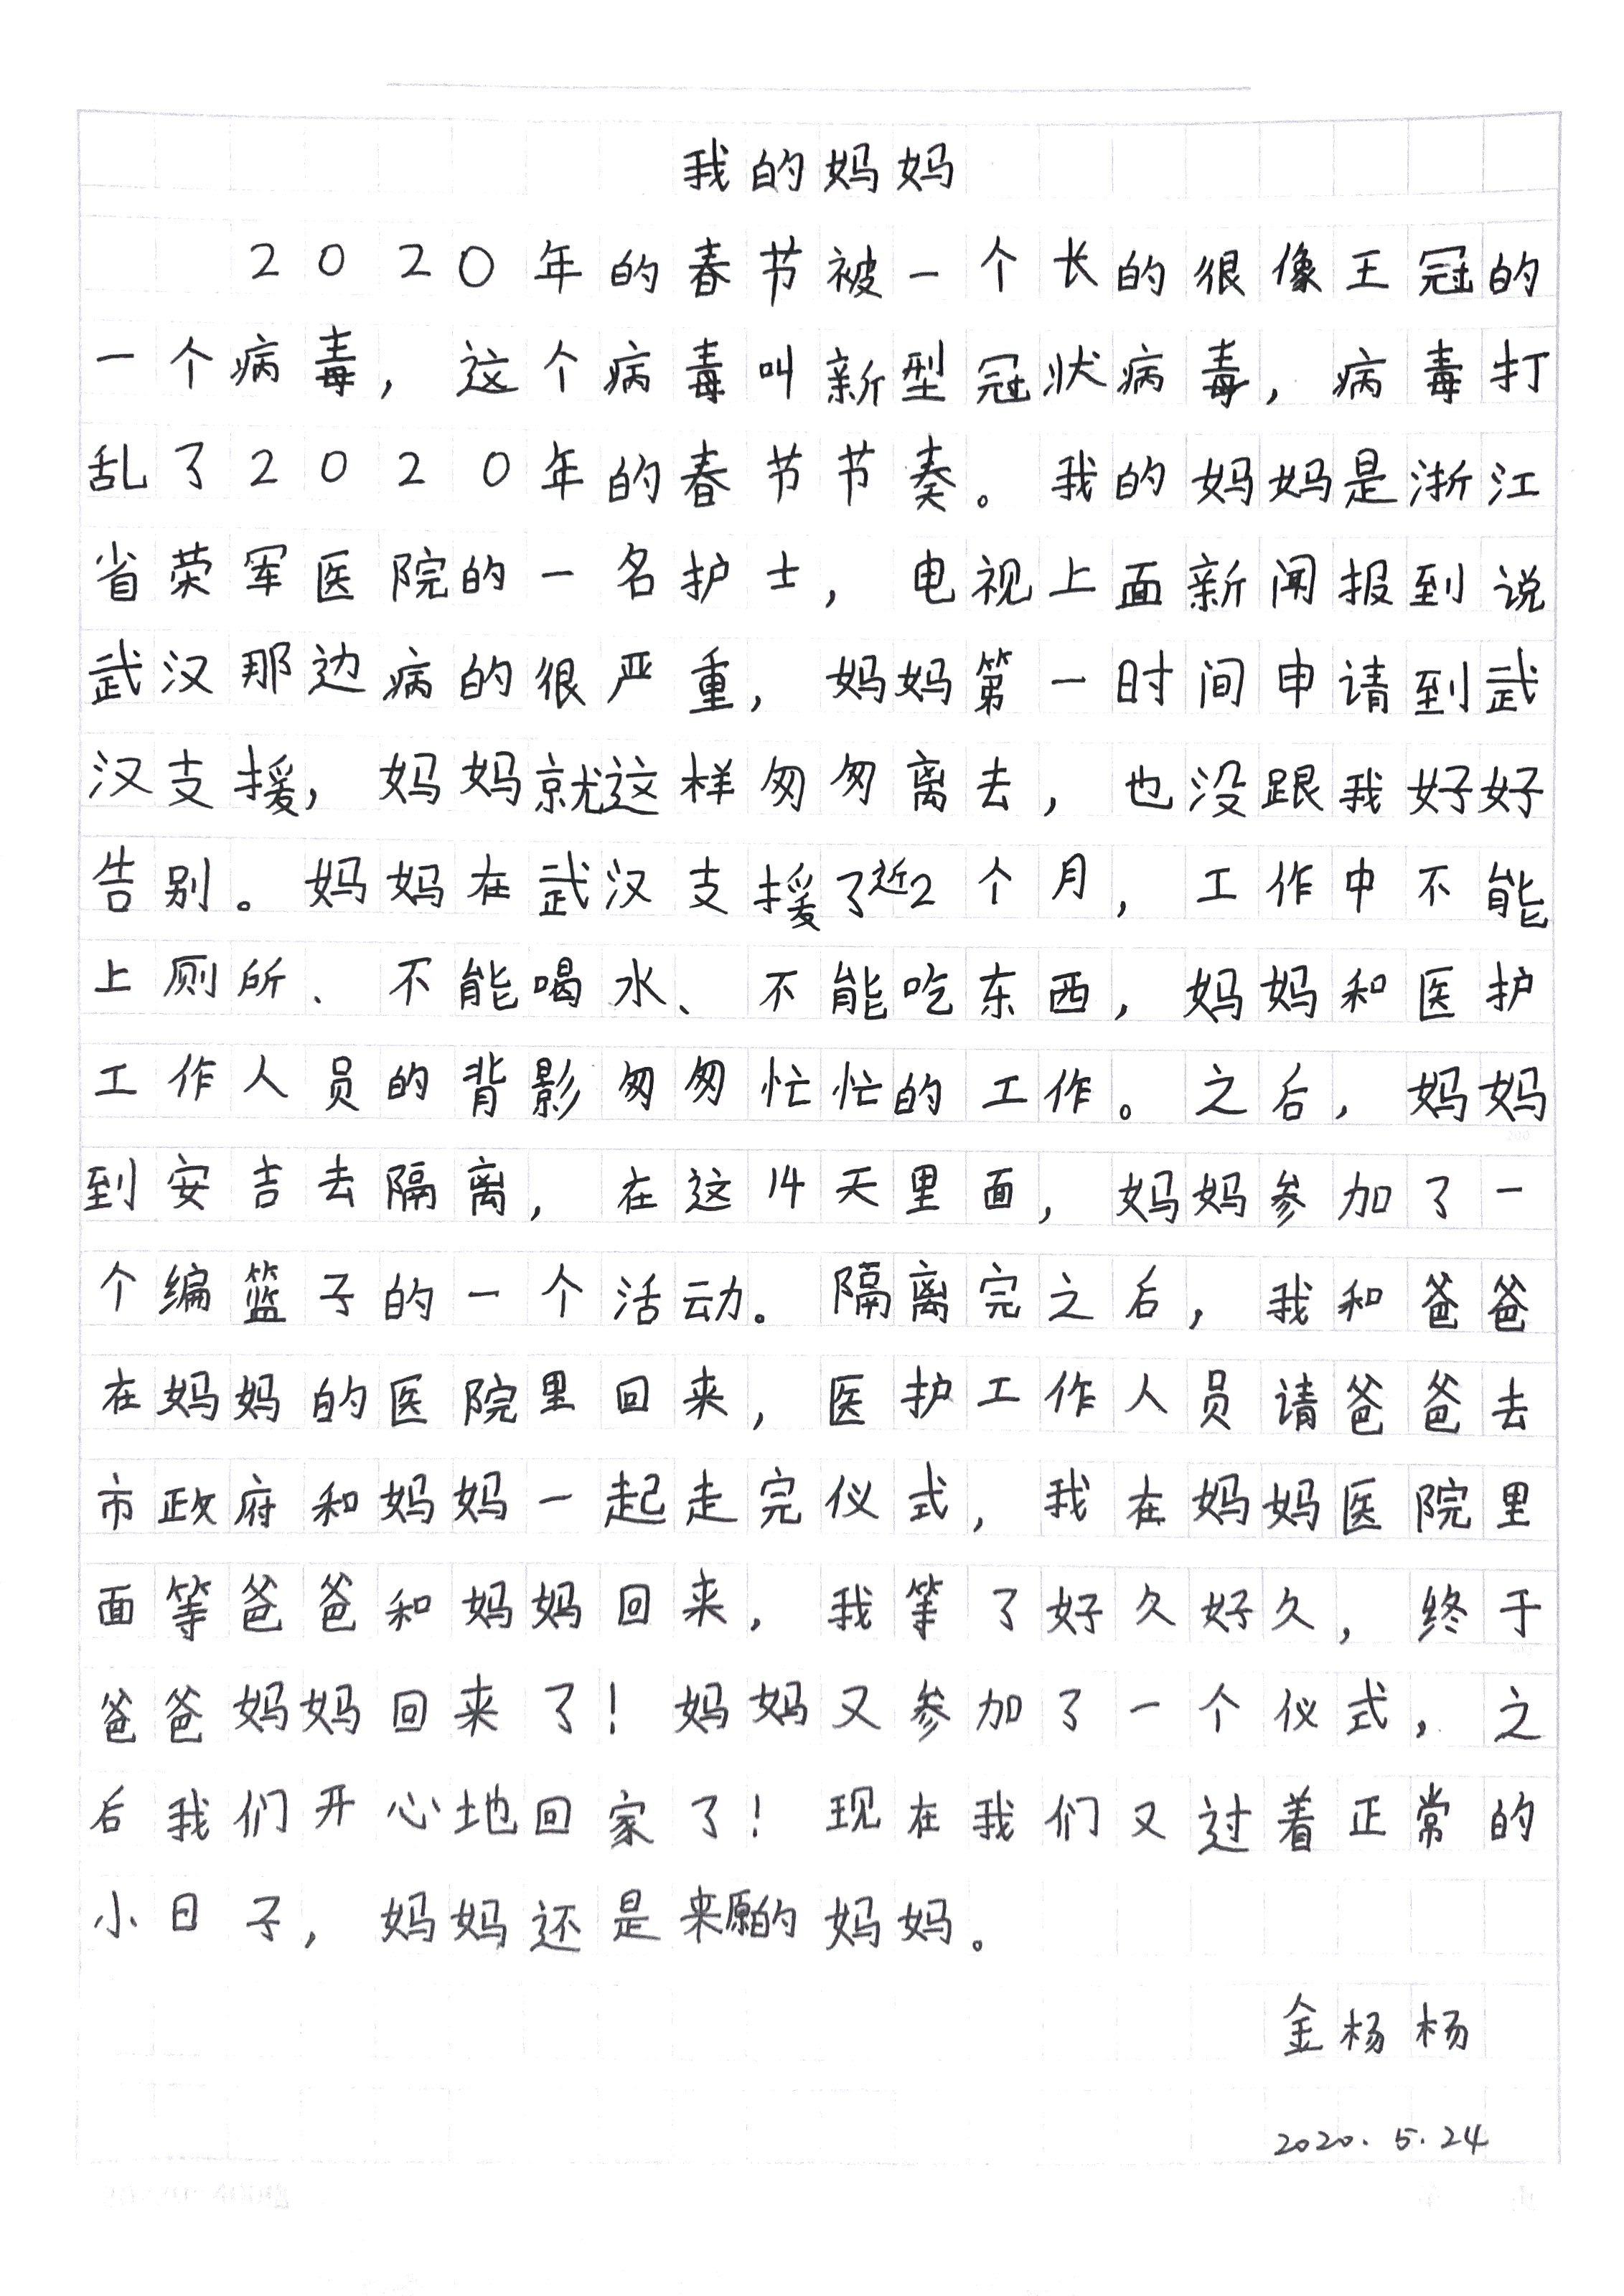 我的妈妈
2020年的春节被一个长的很像王冠的
一个病毒，这个病毒叫新型冠状病毒，病毒打
乱了2020年的春节节奏。我的妈妈是浙江
省荣军医院的一名护士，电视上面新闻报到说
武汉那边病的很严重，妈妈第一时间申请到武
汉支援，妈妈就这样匆匆离去，也没跟我好好
告别。妈妈在武汉支援了近2个月，工作中不能
上厕所、不能喝水、不能吃东西，妈妈和医护
工作人员的背影匆匆忙忙的工作。之后，妈妈
到安吉去隔离，在这14天里面，妈妈参加了一
个编篮子的一个活动。隔离完之后，我和爸爸
在妈妈的医院里回来，医护工作人员请爸爸去
市政府和妈妈一起走完仪式，我在妈妈医院里
面等爸爸和妈妈回来，我等了好久好久，终于
爸爸妈妈回来了！妈妈又参加了一个仪式，之
后我们开心地回家了！现在我们又过着正常的
小日子，妈妈还是来原的妈妈。
金杨杨
2020.5.24